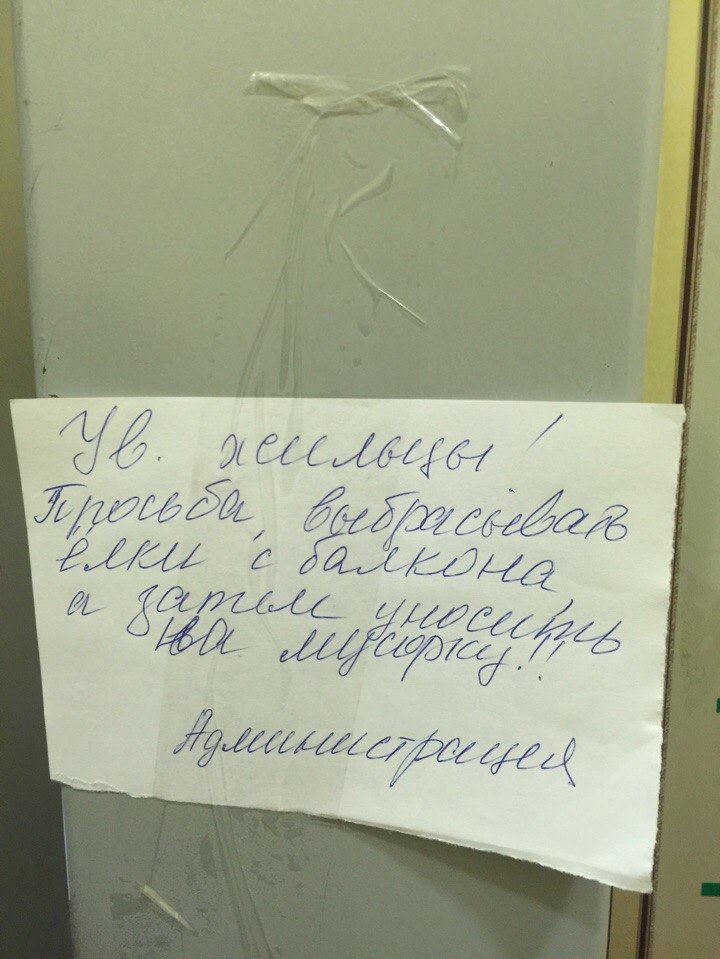 Ув. жильцы!
Просьба, выбрасывать
елки с балкона,
а затем уносить
на мусорку!!
Администрация